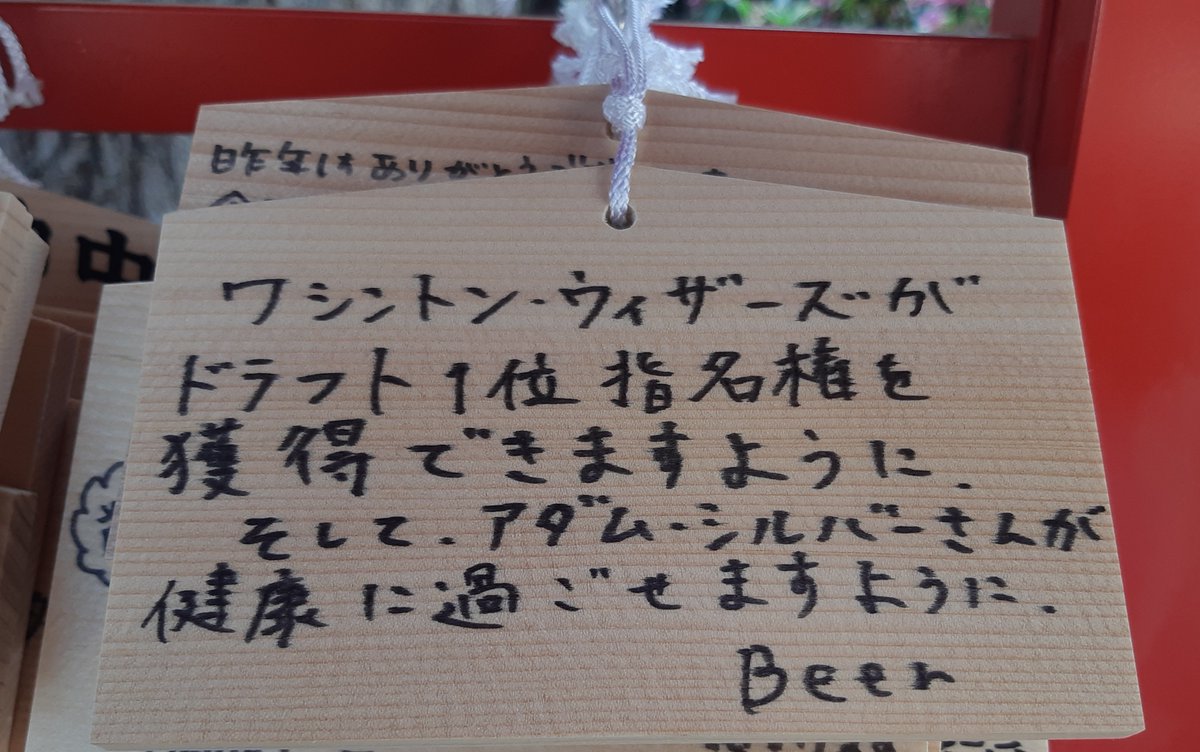 昨年はありがとう
中
ワシントン・ウィザーズが
ドラフト1位指名権を
獲得できますように.
そして.アダム・シルバーさんが
健康に過ごせますように.
Beer